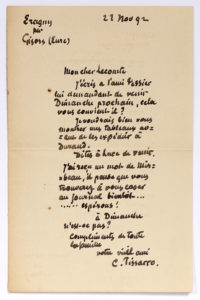 Eragny
par
Gisors (Eure)
23 Nov 92
Mon cher Lecomte
J'écris à l'ami Tissier
lui demandant de venir
Dimanche prochain, cela
vous convient il ?
Je voudrais bien vous
montrer mes tableaux av-
ant de les expédier à
Durand.
Dites à Luce de venir.
J'ai reçu un mot de Mir-
beau, il pense que vous
trouverez à vous caser
au journal bientôt...
...... espérons !
à Dimanche
n'est-ce pas ?
compliments de toute
la famille
votre vieil ami
C. Pissarro.